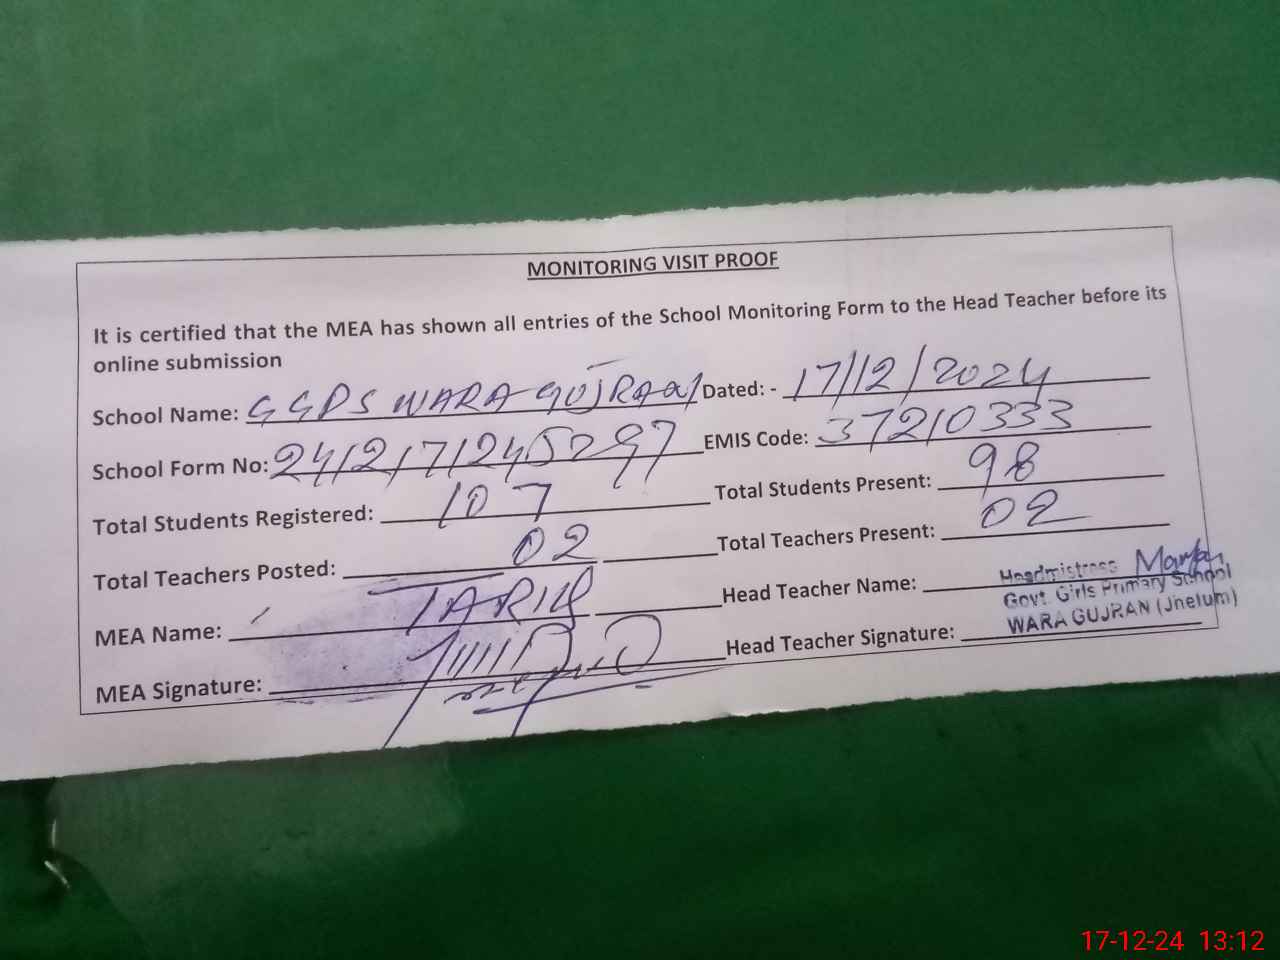 MONITORING VISIT PROOF
It is certified that the MEA has shown all entries of the School Monitoring Form to the Head Teacher before its
online submission
School Name: GGPS WARA GUJRAN Dated: - 17/12/2024
School Form No: 24121712455297 EMIS Code: 37210333
Total Students Registered: 107 Total Students Present: 98
Total Teachers Posted: 02 Total Teachers Present: 02
MEA Name: TARIQ Head Teacher Name:
MEA Signature: Head Teacher Signature:
Headmistress
Govt. Girls Primary School
WARA GUJRAN (Jhelum)
17-12-24 13:12